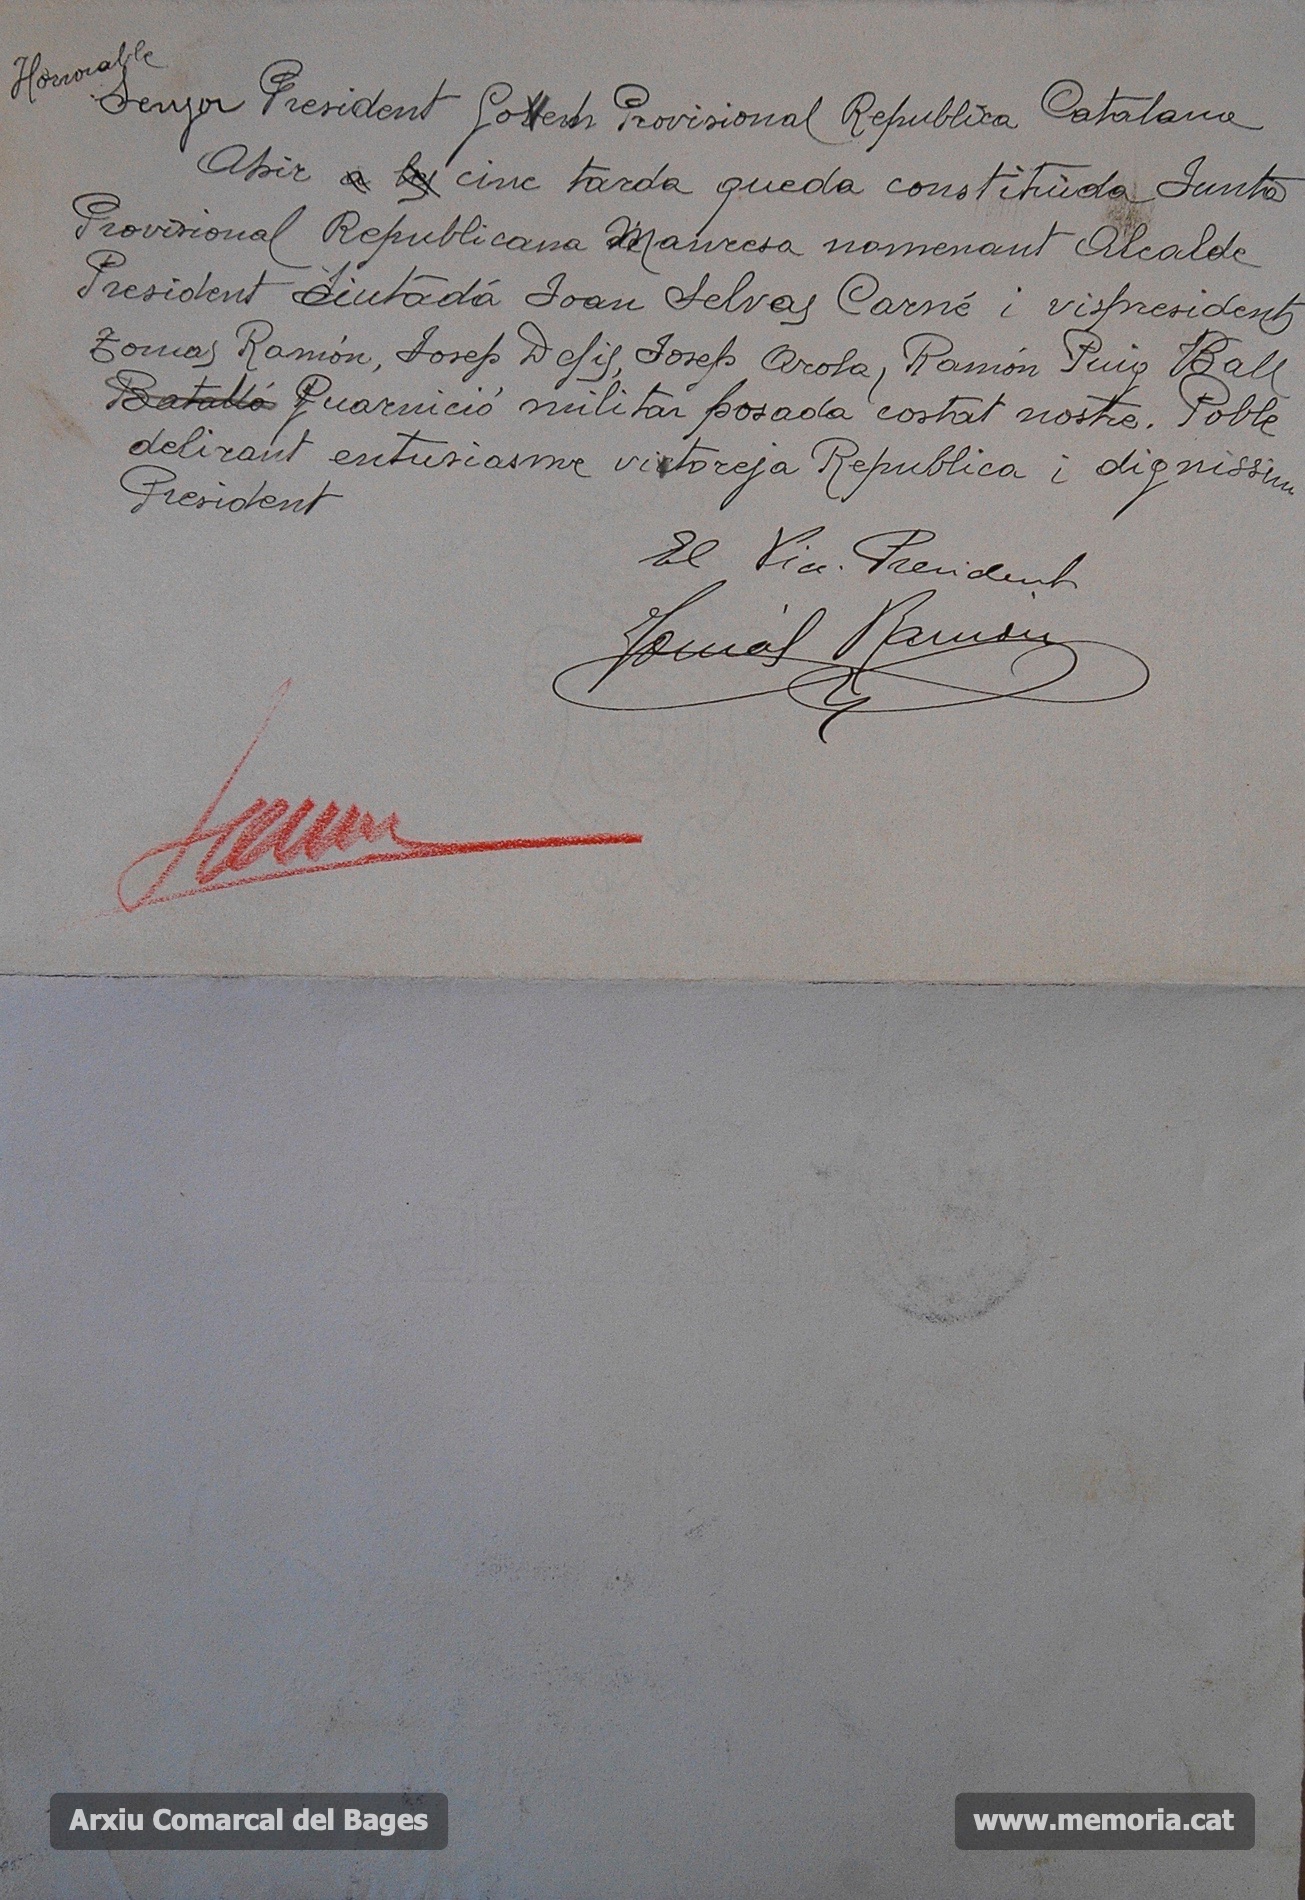 Honorable
Senyor President Govern Provisional Republica Catalana
Ahir a les cinc tarda queda constituida Junta
Provisional Republicana Manresa nomenant Alcalde
President Ciutadá Joan Selvas Carné i vispresidents
Tomas Ramón, Josep Defis, Josep Arola, Ramón Puig Ball
Batalló Guarnició militar posada costat nostre. Poble
delirant entusiasme victoreja Republica i dignissim
President
El Vice-President
Tomás Ramón
Arxiu Comarcal del Bages
www.memoria.cat